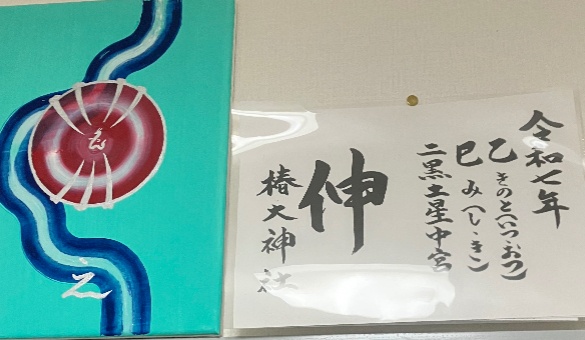 令和七年
乙 きのと(いつおつ)
巳 み(し・き)
二黒土星中宮
伸
椿大神社
え